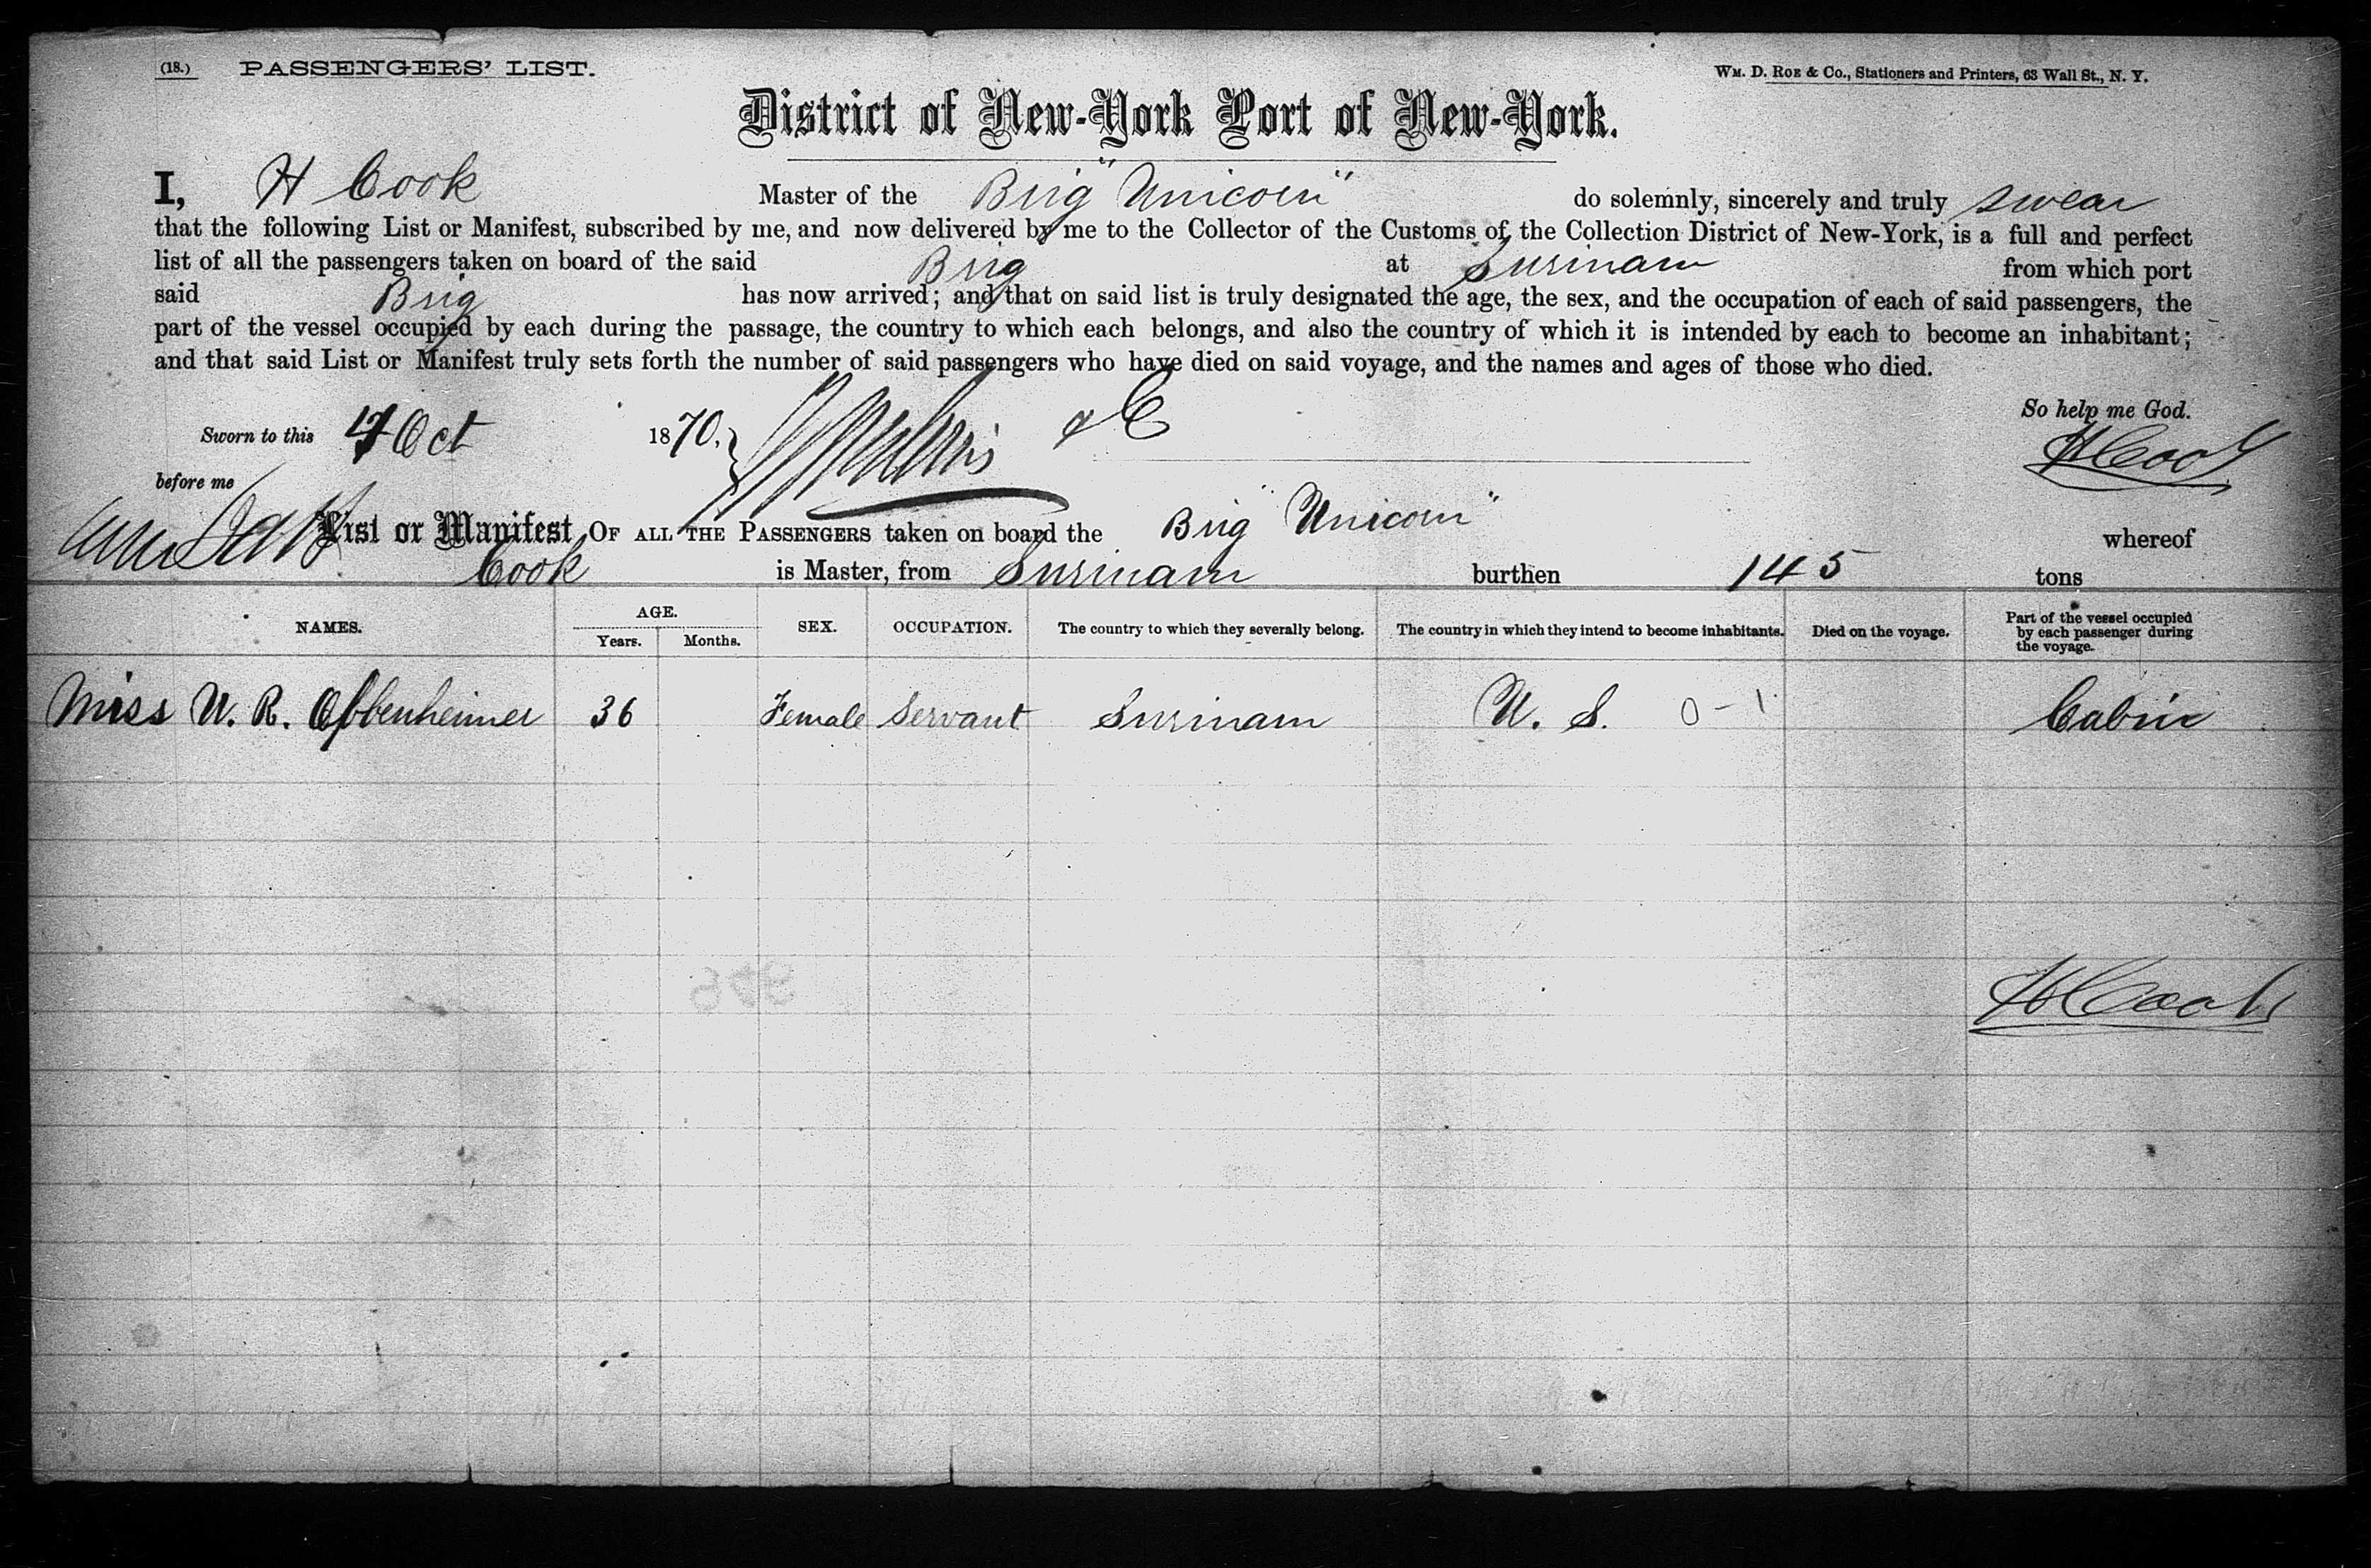 (18.) PASSENGERS' LIST.
WM. D. ROE & Co., Stationers and Printers, 63 Wall St., N. Y.
District of New-York Port of New-York.
I, H Cook Master of the Brig "Unicorn" do solemnly, sincerely and truly swear
that the following List or Manifest, subscribed by me, and now delivered by me to the Collector of the Customs of the Collection District of New-York, is a full and perfect
list of all the passengers taken on board of the said Brig at Surinam from which port
said Brig has now arrived; and that on said list is truly designated the age, the sex, and the occupation of each of said passengers, the
part of the vessel occupied by each during the passage, the country to which each belongs, and also the country of which it is intended by each to become an inhabitant;
and that said List or Manifest truly sets forth the number of said passengers who have died on said voyage, and the names and ages of those who died.
So help me God.
Sworn to this Oct 1870.
H Cook
before me
List or Manifest OF ALL THE PASSENGERS taken on board the Brig "Unicorn" whereof
Cook is Master, from Surinam burthen 145 tons
NAMES. AGE. Years. Months. SEX. OCCUPATION. The country to which they severally belong. The country in which they intend to become inhabitants. Died on the voyage. Part of the vessel occupied by each passenger during the voyage.
Miss U. R. Obbenheimer 36 Female Servant Surinam U. S. 0-1 Cabin
H Cook